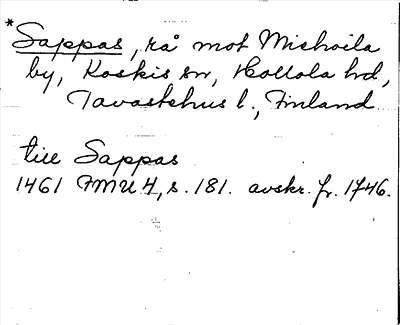 *Sappas, rå mot Miehoila
by, Koskis sn, Hollola hd,
Tavastehus l., Finland
till Sappas
1461 FMU 4, s. 181. avskr. fr. 1746.